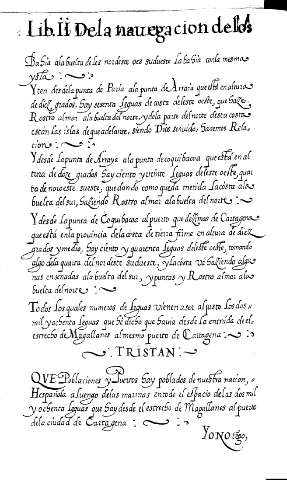 Lib. II De la nauegacion de los
Bahia ala buelta de les nordeste oes sudueste la bahia con la mesma
ysla.
Yten desde la punta de Paria ala punta de Arraia que esta en altura
de diez grados, hay sesenta leguas de costa deleste oeste, que haze
Rostro al mar ala buelta del norte, y dela parte del norte desta costa
estan las islas de que adelante, siendo Dios seruido, haremos Rela
cion.
Y desde la punta de Arraya ala punta de coquibacoa que esta en al
tura de doze grados hay ciento y veinte leguas deleste oeste, quar
ta de noroeste sueste, quedando como queda metida la costa ala
buelta del sur, haziendo Rostro al mar ala buelta del norte.
Y desde la punta de Coquibacoa al puerto que dezimos de Cartagena
que esta en la prouincia dela costa de tierra firme en altura de diez
grados y medio, hay ciento y quarenta leguas deleste oeste, tomando
algo dela quarta del nordeste sudueste, y la costa va haziendo algu
nas ensenadas ala buelta del sur, y puntas y Rostro al mar ala
buelta del norte
Todos los quales numeros de leguas vienen a ser al justo los dos
mil y ochenta leguas que he dicho que hauia desde la entrada de el
estrecho de Magallanes al mesmo puerto de Cartagena
TRISTAN.
QVE Poblaciones y Puertos hay poblados de nuestra nacion,
Hespañola a luengo de las marinas en todo el espacio de las dos mil
y ochenta leguas que hay desde el estrecho de Magallanes al puerto
de la ciudad de Cartagena
YO NO digo,